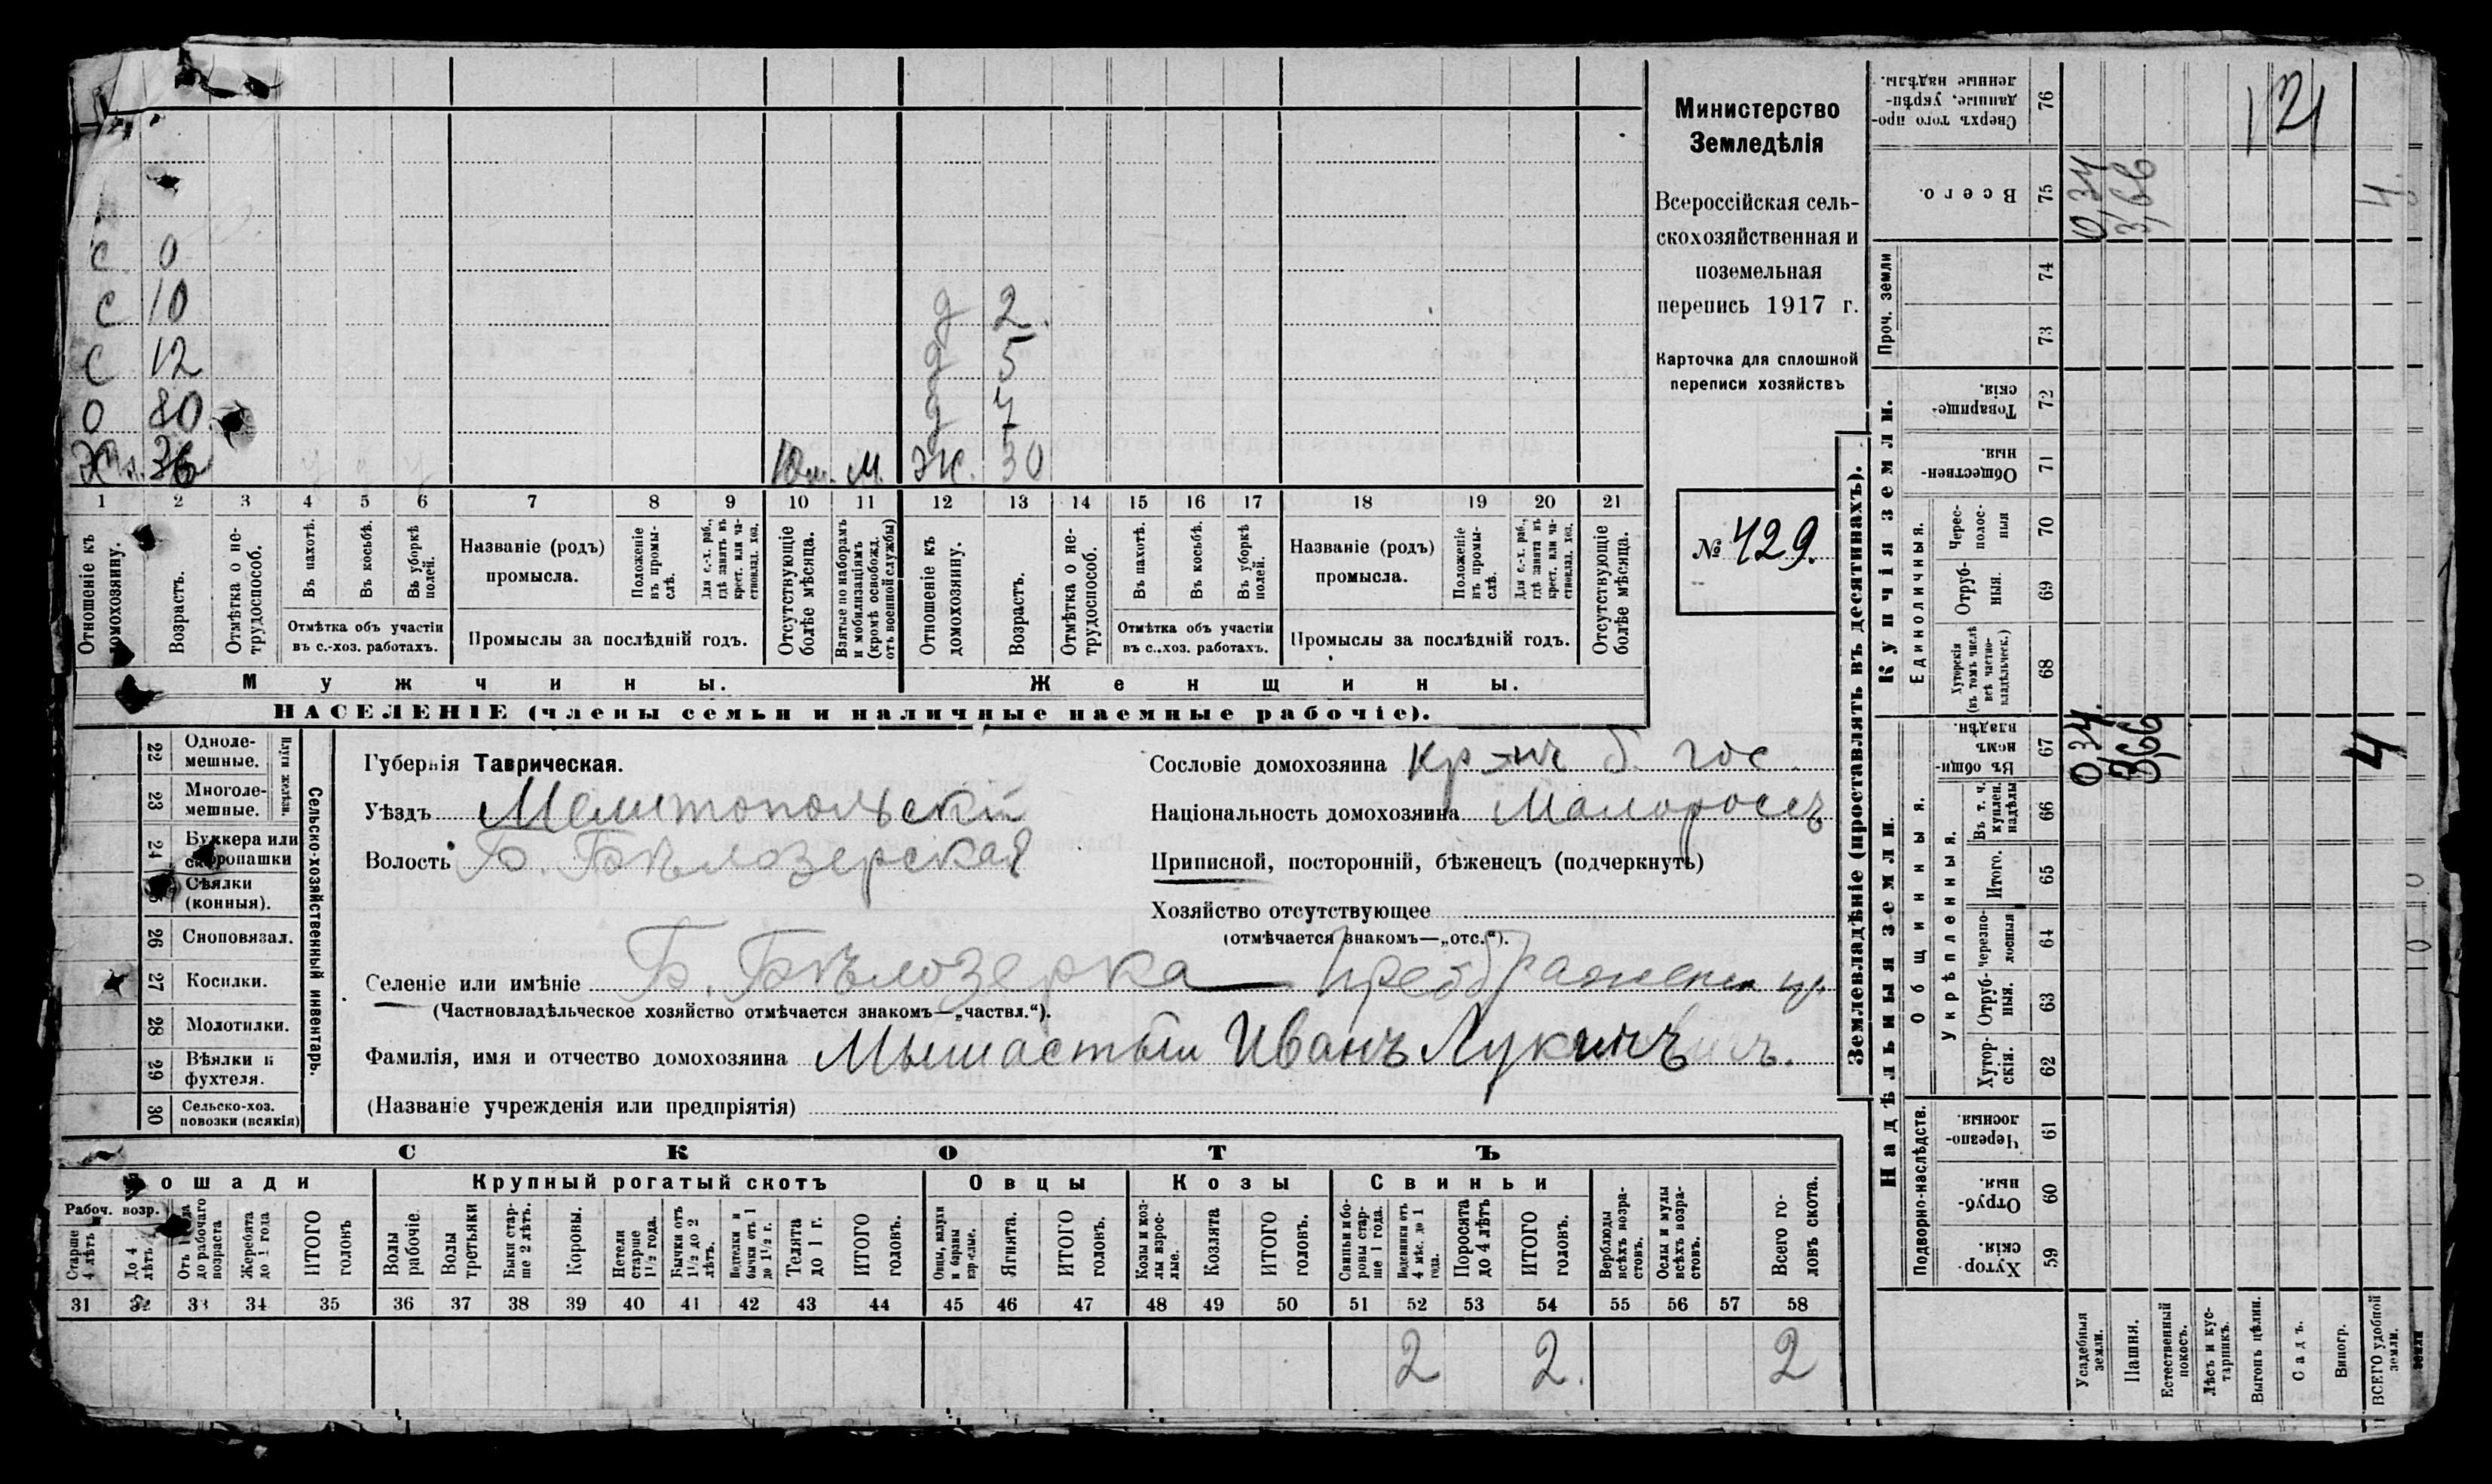 С 0
С 10 д 2.
С 12 д 5
О 80. д 7
Хз. 36 10 м. М. Ж. 30
1 2 3 4 5 6 7 8 9 10 11 12 13 14 15 16 17 18 19 20 21
Отношеніе къ домохозяину.
Возрастъ.
Отмѣтка о нетрудоспособ.
Въ пахотѣ.
Въ косьбѣ.
Въ уборкѣ полей.
Отмѣтка объ участіи
въ с.-хоз. работахъ.
Названіе (родъ)
промысла.
Положеніе въ промыслѣ.
Для с.-х. раб., гдѣ занятъ въ крест. или частновлад. хоз.
Промыслы за послѣдній годъ.
Отсутствующіе болѣе мѣсяца.
Взятые по наборамъ и мобилизаціямъ (кромѣ освобожд. отъ военной службы)
Отношеніе къ домохозяину.
Возрастъ.
Отмѣтка о нетрудоспособ.
Въ пахотѣ.
Въ косьбѣ.
Въ уборкѣ полей.
Отмѣтка объ участіи
въ с..хоз. работахъ.
Названіе (родъ)
промысла.
Положеніе въ промыслѣ.
Для с.-х. раб., гдѣ занята въ крест. или частновлад. хоз.
Промыслы за послѣдній годъ.
Отсутствующіе болѣе мѣсяца.
Мужчины. Женщины.
НАСЕЛЕНІЕ (члены семьи и наличные наемные рабочіе).
Министерство
Земледѣлія
Всероссійская сель-
скохозяйственная и
поземельная
перепись 1917 г.
Карточка для сплошной
переписи хозяйствъ
№ 429.
Сельско-хозяйственный инвентарь.
Плуги желѣзн.
22 Одноле-
мешные.
23 Многоле-
мешные.
24 Буккера или
скоропашки
Сѣялки
(конныя).
26 Сноповязал.
27 Косилки.
28 Молотилки.
29 Вѣялки и
фухтеля.
30 Сельско-хоз.
повозки (всякія)
Губернія Таврическая.
Уѣздъ Мелитопольскій
Волость Б. Бѣлозерская
Сословіе домохозяина кр-нъ б. гос.
Національность домохозяина Малороссъ
Приписной, посторонній, бѣженецъ (подчеркнуть)
Хозяйство отсутствующее
(отмѣчается знакомъ—„отс.“).
Селеніе или имѣніе Б. Бѣлозерка —
(Частновладѣльческое хозяйство отмѣчается знакомъ—„частвл.“).
Фамилія, имя и отчество домохозяина Мышастый Иванъ
(Названіе учрежденія или предпріятія)
СКОТЪ
Лошади Крупный рогатый скотъ Овцы Козы Свиньи
Рабоч. возр.
Старше 4 лѣтъ
До 4 лѣтъ
до рабочаго возраста
Жеребята до 1 года
ИТОГО головъ
Волы рабочіе.
Волы третьяки
Быки старше 2 лѣтъ.
Коровы.
Нетели старше 1½ года.
Бычки отъ 1½ до 2 лѣтъ.
Подтелки и бычки отъ 1 до 1½ г.
Телята до 1 г.
ИТОГО головъ.
Овцы, валухи и бараны взрослые.
Ягнята.
ИТОГО головъ.
Козы и козлы взрослые.
Козлята
ИТОГО головъ.
Свиньи и боровы старше 1 года.
Подсвинки отъ 4 мѣс. до 1 года.
Поросята до 4 лѣтъ
ИТОГО головъ.
Верблюды всѣхъ возрастовъ.
Ослы и мулы всѣхъ возрастовъ.
Всего головъ скота.
31 32 33 34 35 36 37 38 39 40 41 42 43 44 45 46 47 48 49 50 51 52 53 54 55 56 57 58
2 2. 2
Землевладѣніе (проставлять въ десятинахъ).
Купчія земли.
Надѣльныя земли.
Сверхъ того проданные, укрѣпленные надѣлы. 76
121
Всего. 75 0,34 3,66 4.
Проч. земли 74
73
Товарищескія. 72
Общественныя. 71
Единоличныя.
Чересполосныя 70
Отрубныя. 69
Хуторскія (въ томъ числѣ всѣ частновладѣльческ.) 68
Общинныя.
Въ общиномъ владѣн. 67 0,34. 3,66 4
Укрѣпленныя.
Въ т. ч. куплен. надѣлы 66
Итого. 65
черезполосныя 64
Отрубныя. 63
Хуторскія. 62
Подворно-наслѣдств.
Черезполосныя 61
Отрубныя. 60
Хуторскія. 59
Усадебныя земли.
Пашня.
Естественный покосъ.
Лѣсъ и кустарникъ.
Выгонъ цѣлин.
Садъ.
Виногр.
ВСЕГО удобной земли.
земли